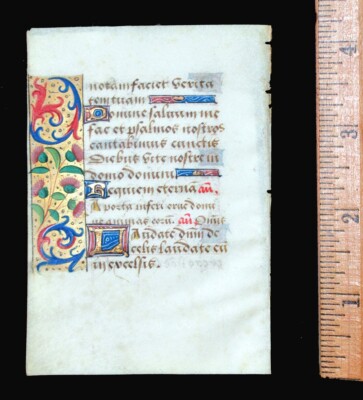 notam faciet verita
tem tuam
Domine saluum me
fac et psalmos nostros
cantabimus cunctis
Diebus vite nostre in
domo domini
Requiem eternā añ.
A porta inferi erue domi
ne animas eorū. añ. Omīs
Laudate dñm de
celis laudate eū
in excelsis.
1
2
3
4